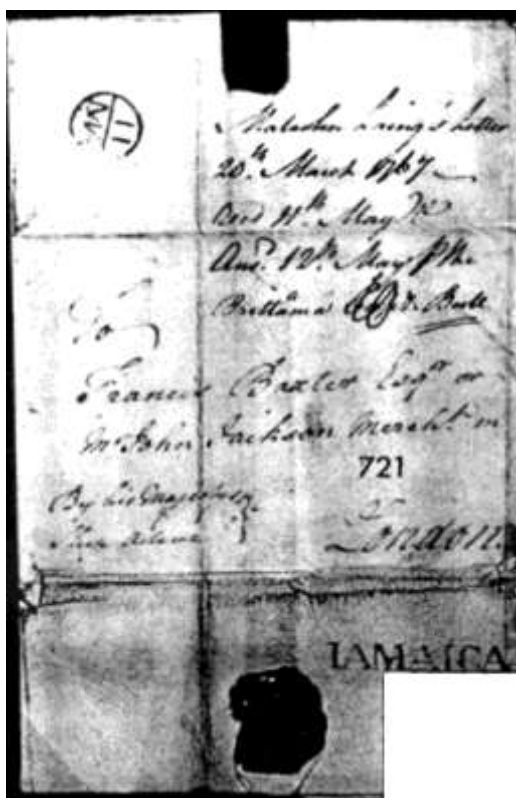 11
MA
Malcolm Laing's Letter
20th March 1767
Recd 11th May
Ansd 12th May p the
Brittania Capt
To
Francis Baxter Esqr or
Mr John Jackson Mercht in
721
London
By his Majestys
Ship
JAMAICA